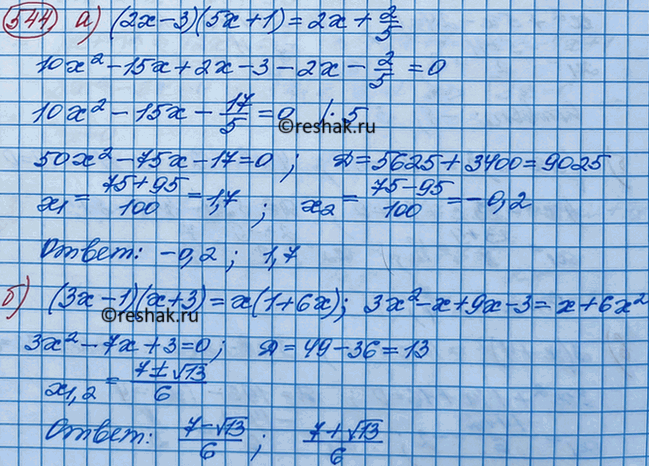 544 а) (2x-3)(5x+1)=2x+2/5
10x²-15x+2x-3-2x-2/5=0
10x²-15x-17/5=0 |·5
©reshak.ru
50x²-75x-17=0; Д=5625+3400=9025
x₁=(75+95)/100=1,7; x₂=(75-95)/100=-0,2
Ответ: -0,2; 1,7
б) (3x-1)(x+3)=x(1+6x); 3x²-x+9x-3=x+6x²
©reshak.ru
3x²-7x+3=0; Д=49-36=13
x₁,₂=(7±√13)/6
Ответ: (7-√13)/6; (7+√13)/6